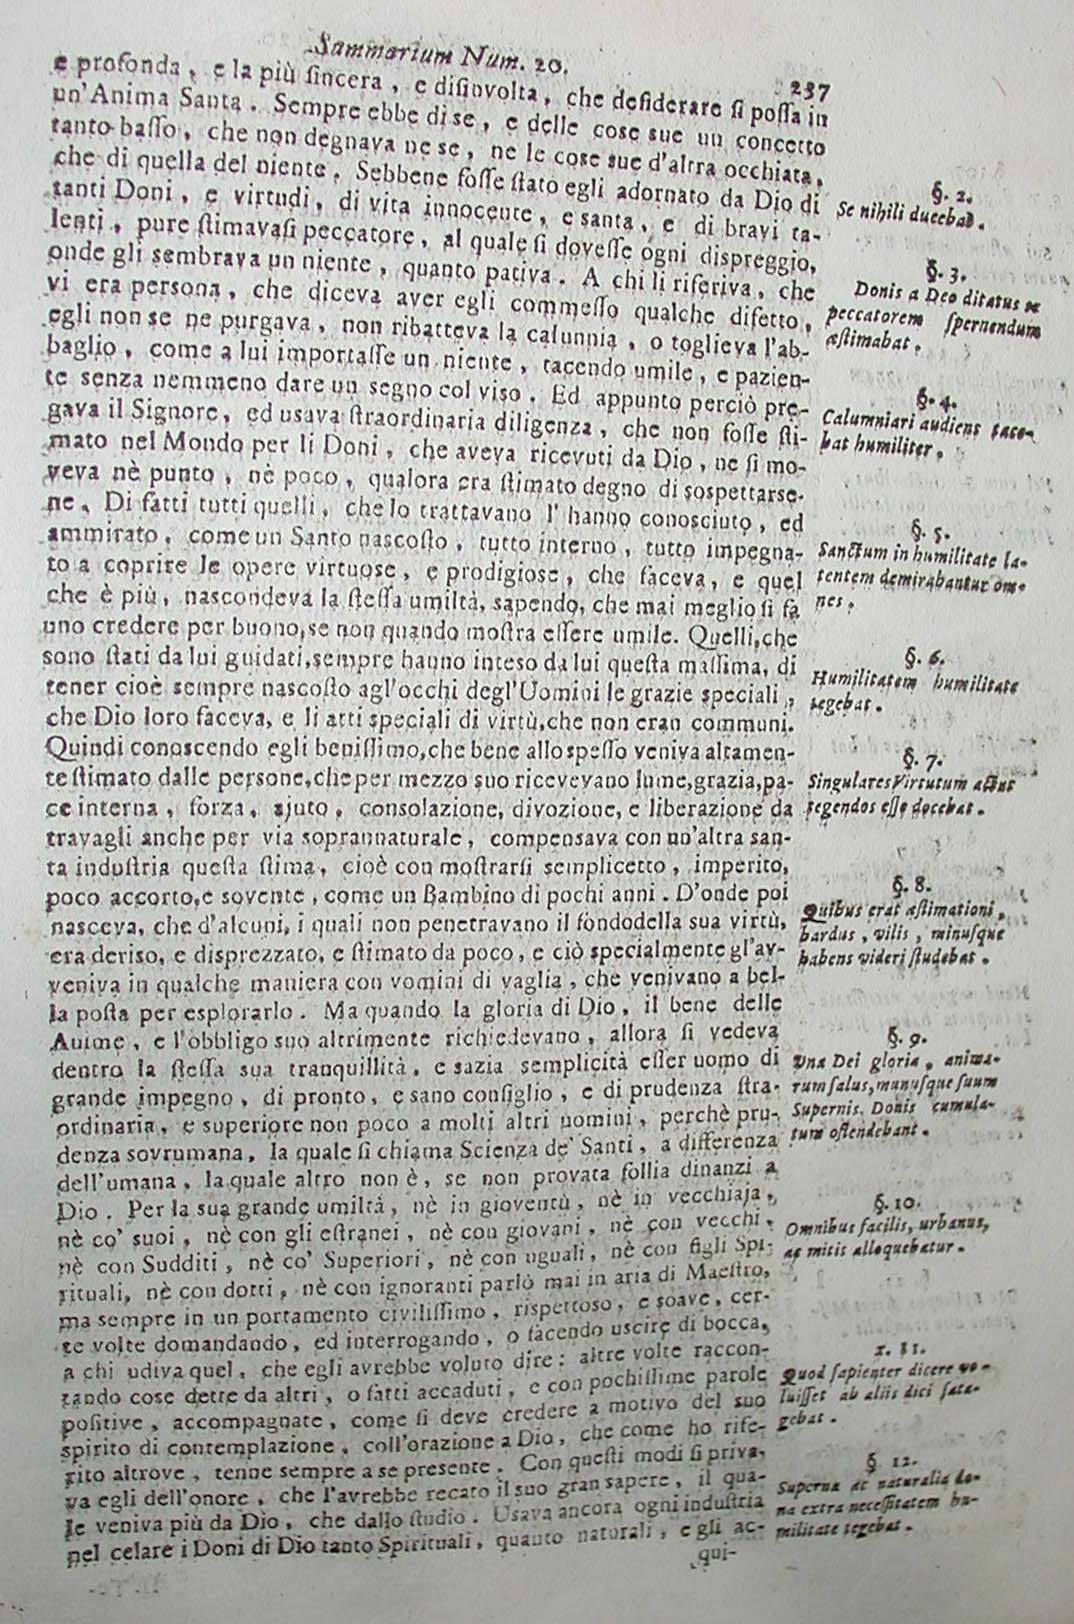 Summarium Num. 20.
237
e profonda, e la più ſincera, e diſinvolta, che deſiderare ſi poſſa in
un'Anima Santa. Sempre ebbe di se, e delle cose sue un concetto
tanto baſſo, che non degnava ne se, ne le cose sue d'altra occhiata,
che di quella del niente. Sebbene foſſe ſtato egli adornato da Dio di
tanti Doni, e virtudi, di vita innocente, e santa, e di bravi ta-
lenti, pure ſtimavaſi peccatore, al quale ſi doveſſe ogni dispreggio,
onde gli sembrava un niente, quanto pativa. A chi li riferiva, che
vi era persona, che diceva aver egli commeſſo qualche difetto,
egli non se ne purgava, non ribatteva la calunnia, o toglieva l'ab-
baglio, come a lui importaſſe un niente, tacendo umile, e pazien-
te senza nemmeno dare un segno col viso. Ed appunto perciò pre-
gava il Signore, ed usava ſtraordinaria diligenza, che non foſſe ſti-
mato nel Mondo per li Doni, che aveva ricevuti da Dio, ne ſi mo-
veva nè punto, nè poco, qualora era ſtimato degno di sospettarse-
ne. Di fatti tutti quelli, che lo trattavano l'hanno conosciuto, ed
ammirato, come un Santo nascoſto, tutto interno, tutto impegna-
to a coprire le opere virtuose, e prodigiose, che faceva, e quel
che è più, nascondeva la ſteſſa umiltà, sapendo, che mai meglio ſi fà
uno credere per buono, se non quando moſtra eſſere umile. Quelli, che
sono ſtati da lui guidati, sempre hanno inteso da lui queſta maſſima, di
tener cioè sempre nascoſto agl'occhi degl'Uomini le grazie speciali,
che Dio loro faceva, e li atti speciali di virtù, che non eran communi.
Quindi conoscendo egli beniſſimo, che bene allo speſſo veniva altamen-
te ſtimato dalle persone, che per mezzo suo ricevevano lume, grazia, pa-
ce interna, forza, ajuto, consolazione, divozione, e liberazione da
travagli anche per via soprannaturale, compensava con un'altra san-
ta induſtria queſta ſtima, cioè con moſtrarſi semplicetto, imperito,
poco accorto, e sovente, come un Bambino di pochi anni. D'onde poi
nasceva, che d'alcuni, i quali non penetravano il fondodella sua virtù,
era deriso, e disprezzato, e ſtimato da poco, e ciò specialmente gl'av-
veniva in qualche maniera con vomini di vaglia, che venivano a bel-
la poſta per esplorarlo. Ma quando la gloria di Dio, il bene delle
Anime, e l'obbligo suo altrimente richiedevano, allora ſi vedeva
dentro la ſteſſa sua tranquillità, e sazia semplicità eſſer uomo di
grande impegno, di pronto, e sano conſiglio, e di prudenza ſtra-
ordinaria, e superiore non poco a molti altri uomini, perchè pru-
denza sovrumana, la quale ſi chiama Scienza de' Santi, a differenza
dell'umana, la quale altro non è, se non provata follia dinanzi a
Dio. Per la sua grande umiltà, nè in gioventù, nè in vecchiaja,
nè co' suoi, nè con gli eſtranei, nè con giovani, nè con vecchi,
nè con Sudditi, nè co' Superiori, nè con uguali, nè con figli Spi-
rituali, nè con dotti, nè con ignoranti parlò mai in aria di Maeſtro,
ma sempre in un portamento civiliſſimo, rispettoso, e soave, cer-
te volte domandando, ed interrogando, o facendo uscire di bocca,
a chi udiva quel, che egli avrebbe voluto dire: altre volte raccon-
tando cose dette da altri, o fatti accaduti, e con pochiſſime parole
poſitive, accompagnate, come ſi deve credere a motivo del suo
spirito di contemplazione, coll'orazione a Dio, che come ho rife-
rito altrove, tenne sempre a se presente. Con queſti modi ſi priva-
va egli dell'onore, che l'avrebbe recato il suo gran sapere, il qua-
le veniva più da Dio, che dallo ſtudio. Usava ancora ogni induſtria
nel celare i Doni di Dio tanto Spirituali, quanto naturali, e gli ac-
qui-
§. 2.
Se nihili ducebat.
§. 3.
Donis a Deo ditatus se
peccatorem ſpernendum
æſtimabat.
§. 4.
Calumniari audiens tace-
bat humiliter.
§. 5.
Sanctum in humilitate la-
tentem demirabantur om-
nes.
§. 6.
Humilitatem humilitate
tegebat.
§. 7.
Singulares Virtutum actus
tegendos eſſe docebat.
§. 8.
Quibus erat æſtimationi,
bardus, vilis, minuſque
habens videri ſtudebat.
§. 9.
Una Dei gloria, anima-
rum ſalus, munuſque ſuum
Supernis Donis cumula-
tum oſtendebant.
§. 10.
Omnibus facilis, urbanus,
ac mitis alloquebatur.
§. 11.
Quod ſapienter dicere vo-
luiſſet ab aliis dici ſata-
gebat.
§ 12.
Superna ac naturalia do-
na extra neceſſitatem hu-
militate tegebat.